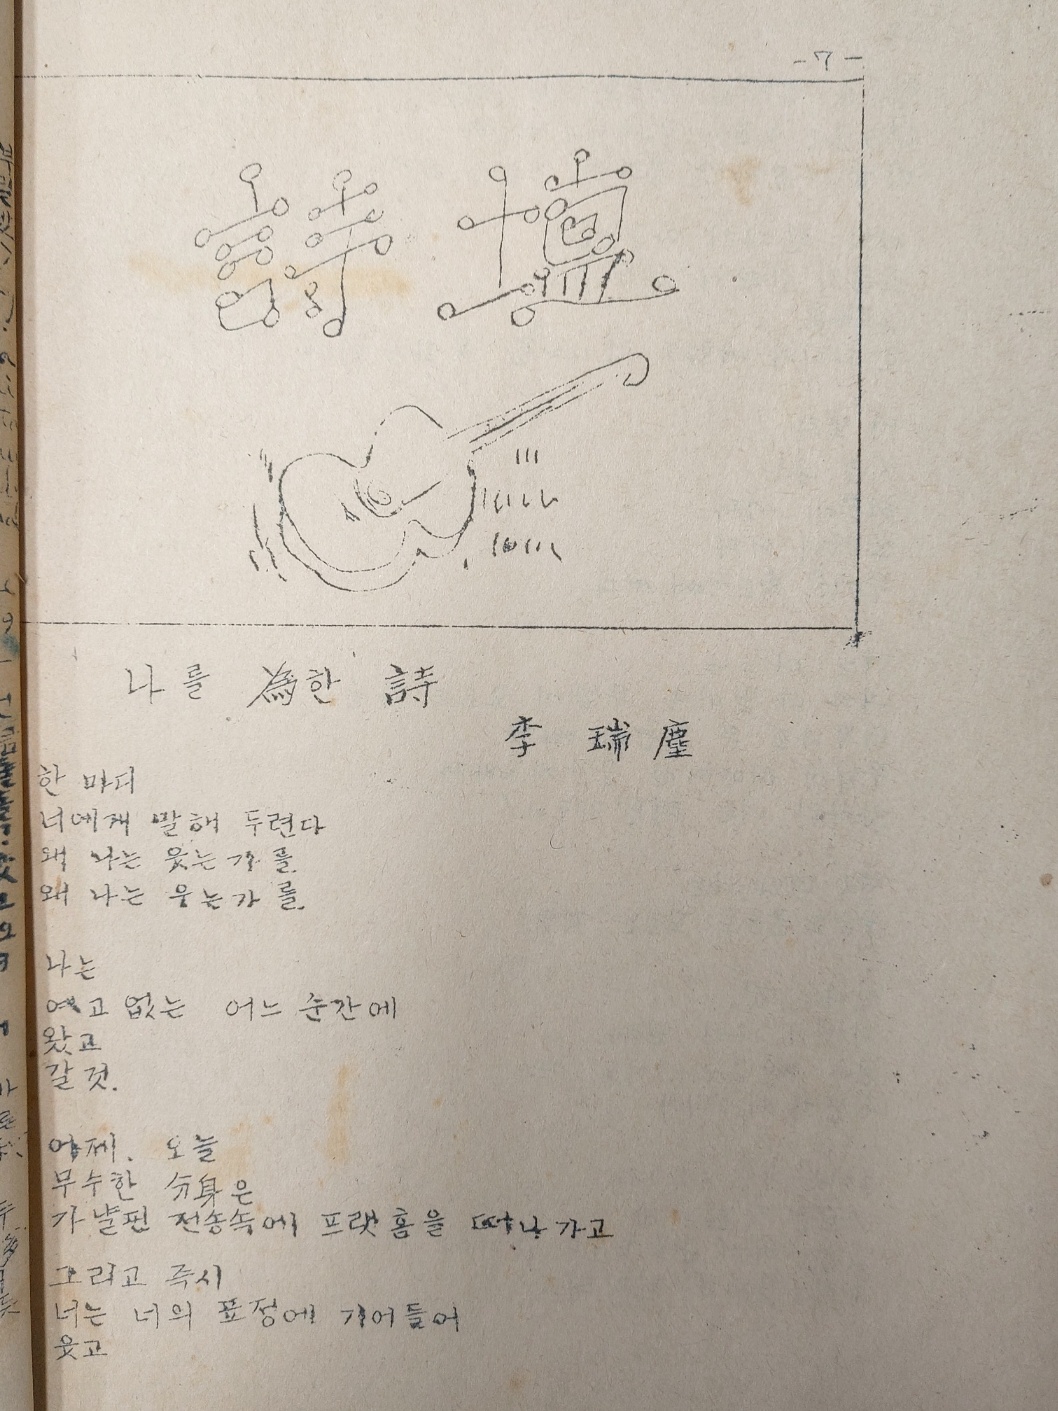 -7-
詩 壇
나를 爲한 詩
李 瑞 塵
한 마디
너에게 말해 두련다
왜 나는 웃는가를
왜 나는 우는가를
나는
예고 없는 어느 순간에
왔고
갈 것.
어제. 오늘
무수한 分身은
가냘핀 전송속에 프랫홈을 떠나가고
그리고 즉시
너는 너의 표정에 기어들어
웃고